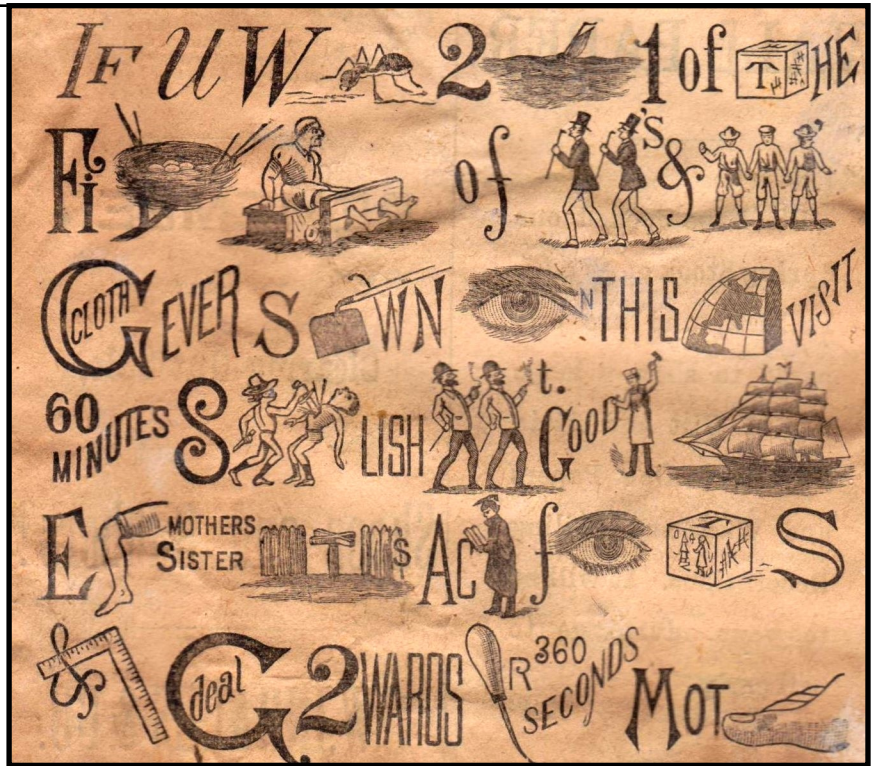 IF U W 2 1 of T HE
Fi of 's &
G CLOTH EVER S WN N THIS VISIT
60 MINUTES S LISH t. GOOD
E MOTHERS SISTER T S AC f S
& G deal 2WARDS R 360 SECONDS MOT